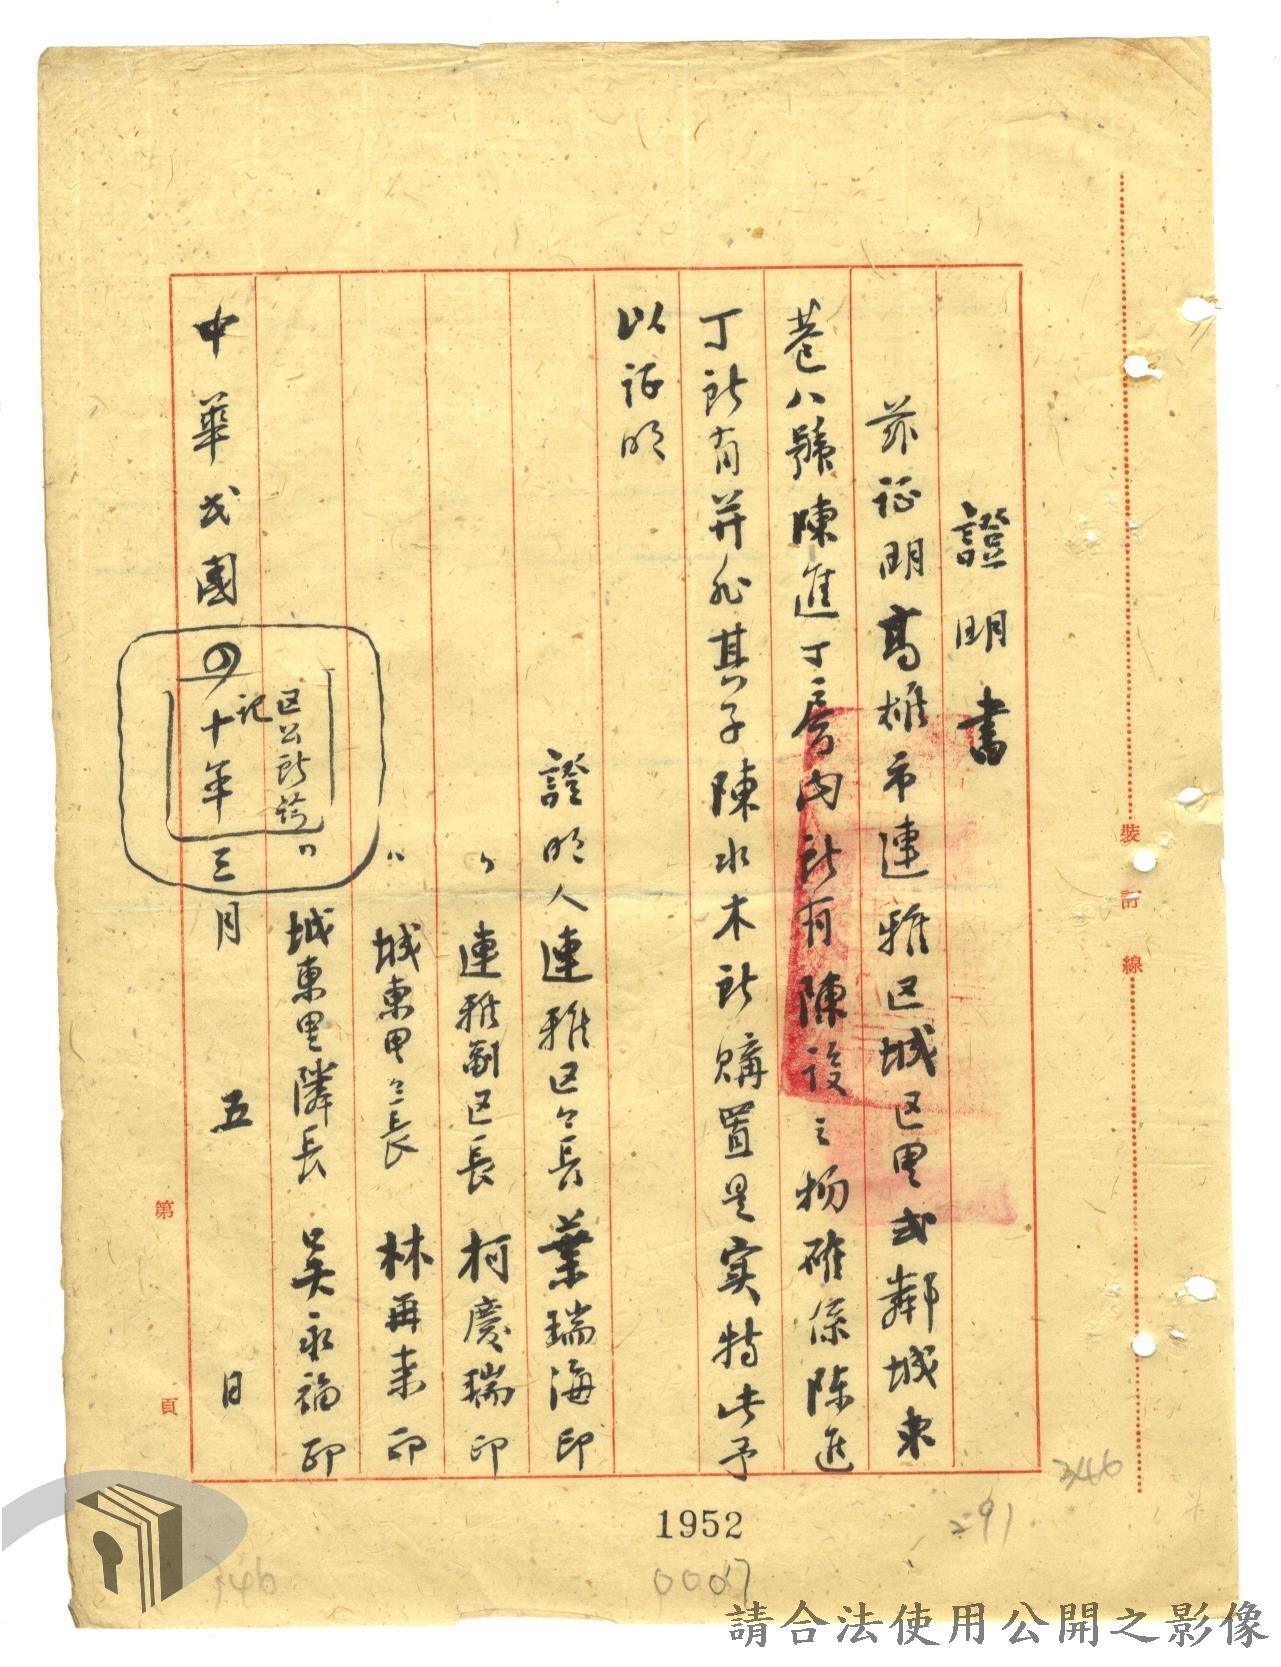 證明書
茲证明高雄市連雅区城区里弍鄰城東
巷八號陳進丁房內所有陳設之物確係陈進
丁所有并非其子陳水木所購置是实特此予
以证明
證明人連雅区々長葉瑞海印
〃連雅副区長柯慶瑞印
〃城東里々長林再来印
〃城東里隣長吳永福印
区公所鈐
记
中華民國四十年三月五日
裝訂線
第頁
1952
0007
291
346
346
請合法使用公開之影像